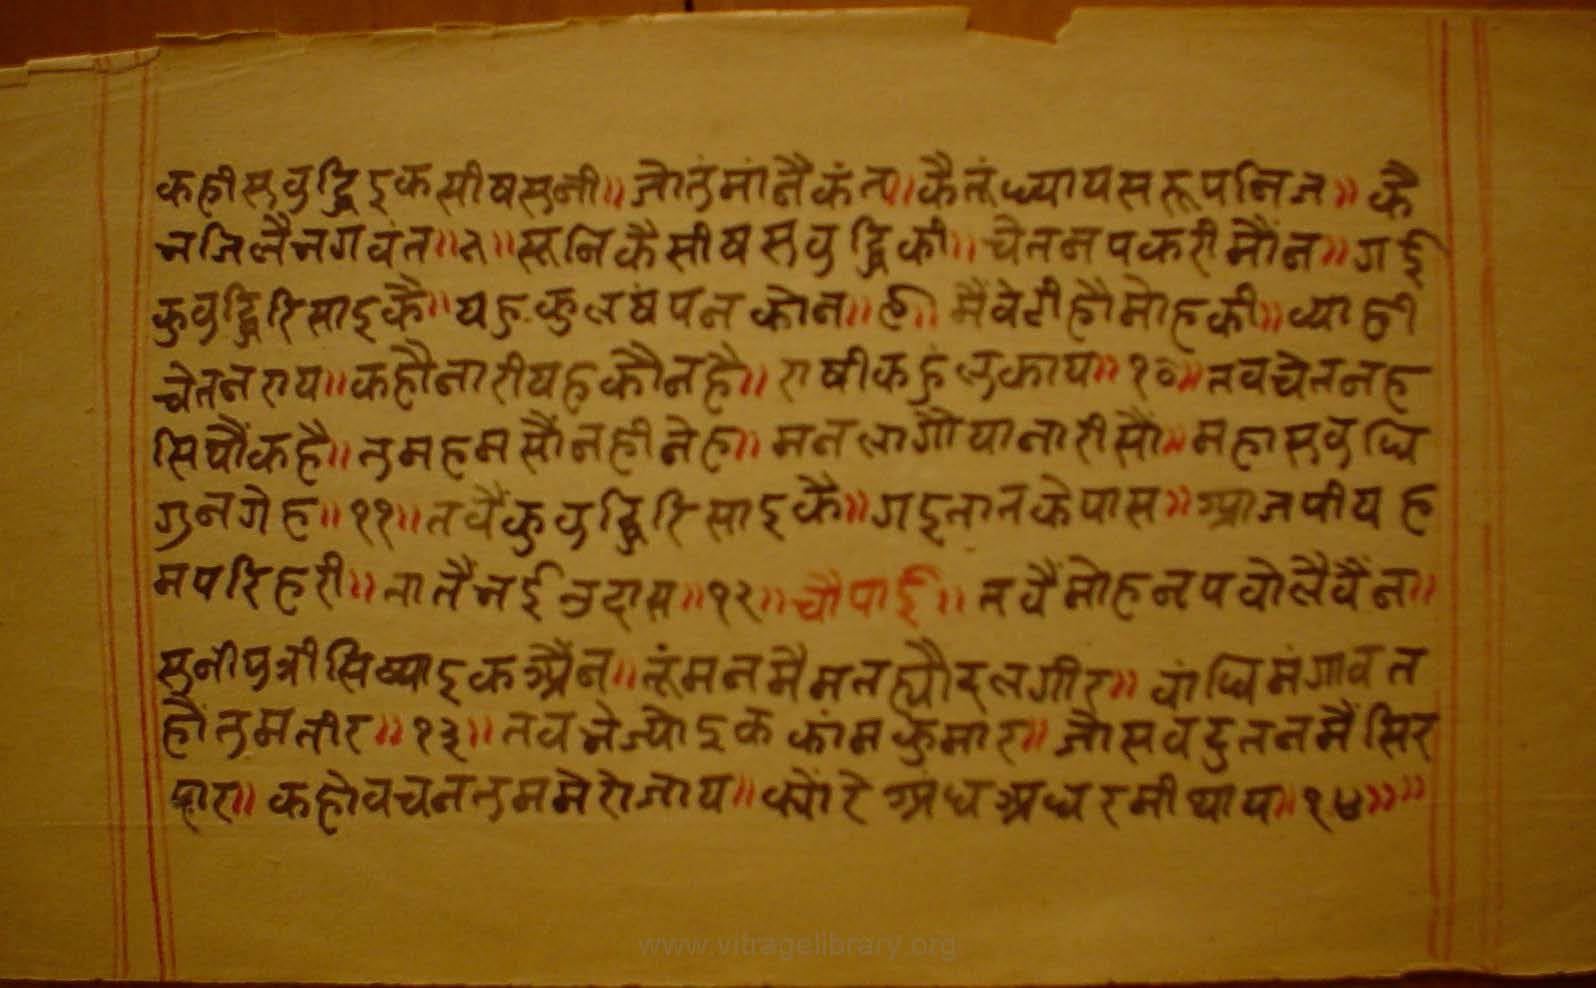 कहीसुवुद्धिइकसीषसुनी॥जोतुंमांनैकंत॥कैतूंध्यायसरूपनिज॥कै
भजिलैभगवंत॥८॥सुनिकैसीषसुवुद्धिकी॥चेतनपकरीमौंन॥गई
कुवुद्धिरिसाइकै॥यहकुलषंपनकोन॥९॥मैंवेटीहौमोहकी॥व्याही
चेतनराय॥कहौनारीयहकौनहै॥राषीकहुंलुकाय॥१०॥तवचेतनह
सियौंकहै॥तुमहमसौंनहीनेह॥मनलागौयानारीसौं॥महासुवुधि
गुनगेह॥११॥तवैंकुवुद्धिरिसाइकै॥गइतातकेपास॥आजपीयह
मपरिहरी॥तातैंभईउदास॥१२॥चौपाई॥तवैंमोहनृपवोलैवैंन॥
सुनीपुत्रीसिष्याइकअैंन॥तूंमनमैमतह्यौदलगीर॥वांधिमंगावत
हौंतुमतीर॥१३॥तवभेज्योइककांमकुमार॥जोसवदुतनमैंसिर
दार॥कहोवचनतुममेरोजाय॥क्योंरेअंधअधरमीथाय॥१४॥॥
www.vitragelibrary.org